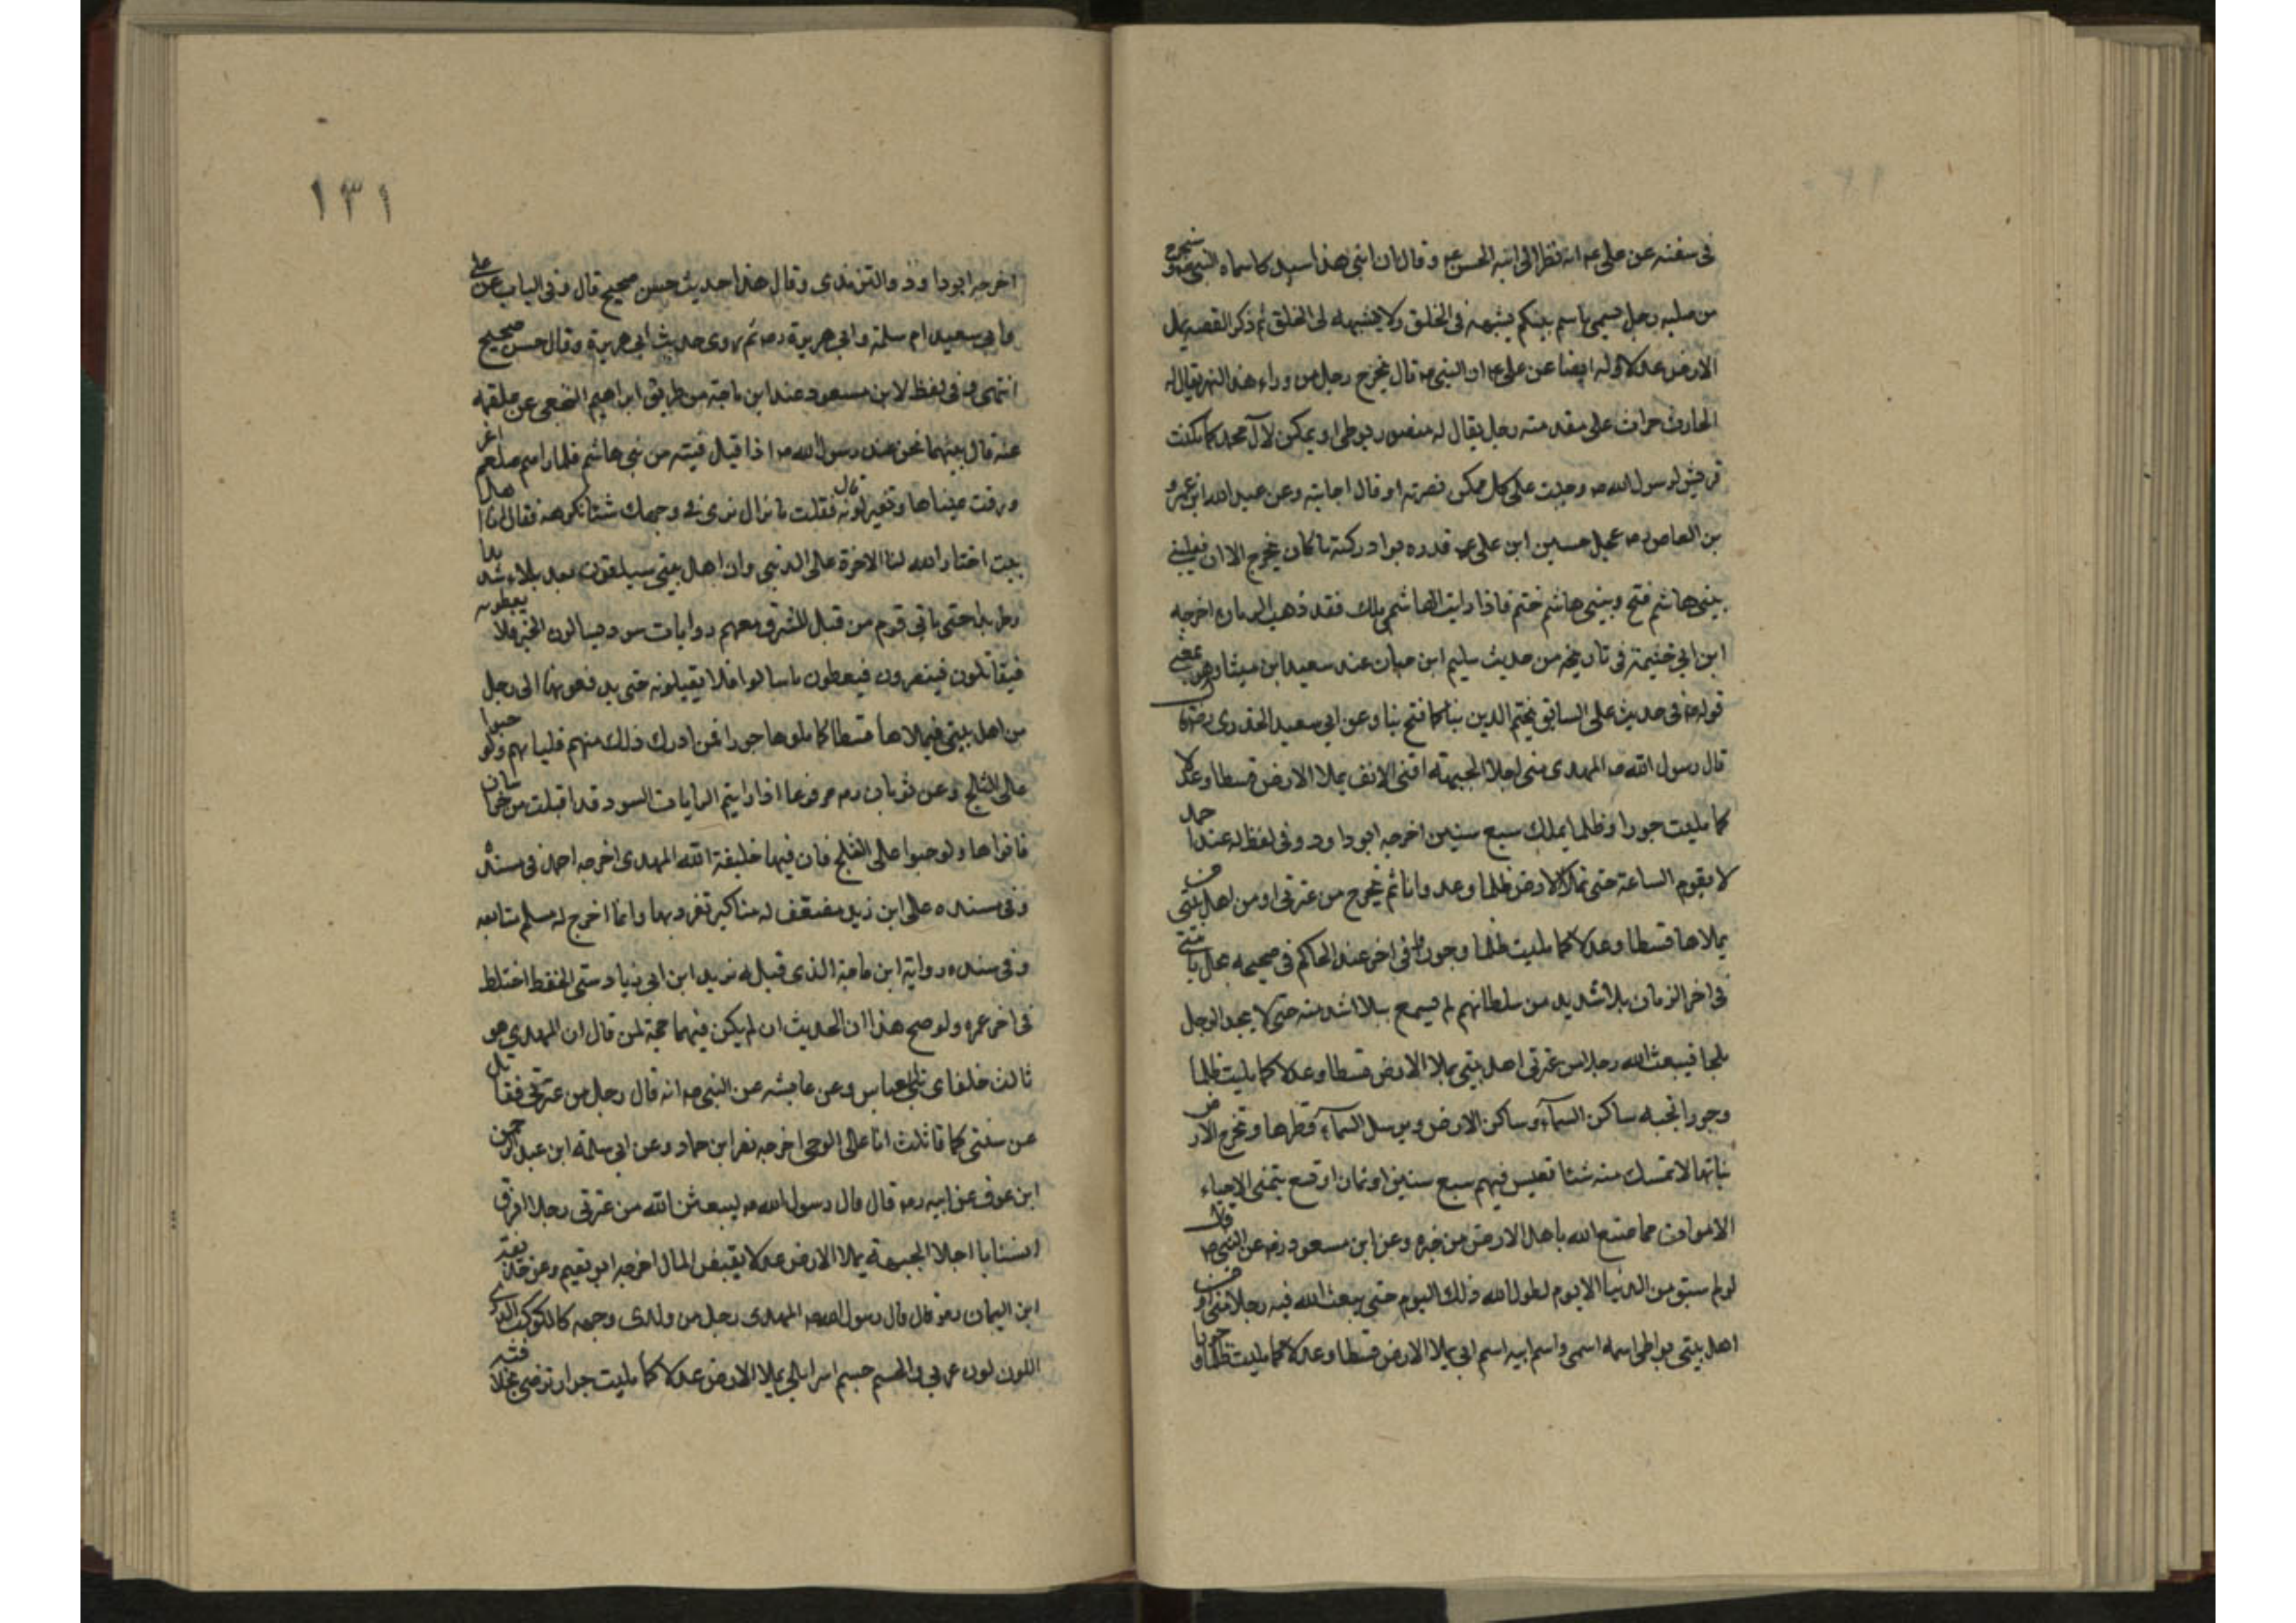 فى سننه عن على عم انه نظر الى ابنه الحسن عم وقال ان ابنى هذا سيد كما سماه النبى صم وسيخرج
من صلبه رجل يسمى باسم نبيكم يشبهه فى الخلق ولا يشبهه فى الخلق ثم ذكر القصه يملا
الارض عدلا وله ايضا عن على عم ان النبى صم قال يخرج رجل من وراء هذا النهر يقال له
الحارث حراث على مقدمته رجل يقال له منصور يوطى او يمكن لآل محمد كما مكنت
قريش لرسول الله صم وجبت على كل ممكن نصرته او قال اجابته وعن عبد الله ابن عمرو
بن العاص عجل حسين ابن على عم قدره لو ادركته ما كان يخرج الا ان
ببنى هاشم فتح وببنى هاشم ختم فاذا رايت الهاشمى ملك فقد ذهب الزمان اخرجه
ابن ابى خثيمة فى تاريخه من حديث سليم ابن حيان عنه سعيد ابن ميثا وهو بمعنى
قوله صم فى حديث على السابق يختم الدين بنا كما فتح بنا وعن ابى سعيد الخدرى
قال رسول الله صم المهدى منى اجلا الجبهته اقنى الانف يملا الارض قسطا وعدلا
كما مليت جورا وظلما يملك سبع سنين اخرجه ابو داود وفى لفظ له عند احمد
لا يقوم الساعة حتى تملا الارض ظلما وعدوانا ثم يخرج من عترتى او من اهل بيتى من
يملاها قسطا وعدلا كما مليت ظلما وجورا وفى اخر عند الحاكم فى صحيحه يحل بامتى
فى اخر الزمان بلاء شديد من سلطانهم لم يسمع بلاء اشد منه حتى لا يجد الرجل
ملجا فيبعث الله رجلا من عترتى اهل بيتى يملا الارض قسطا وعدلا كما مليت ظلما
وجورا تحبه ساكن السمآء وساكن الارض ويرسل السمآء قطرها وتخرج الارض
نباتها لا تمسك منه شئا تعيس فيهم سبع سنين او ثمان او تسع يتمنى الاحياء
الاموات مما صنع الله باهل الارض من خيره وعن ابن مسعود رض عن النبى صم قال
لو لم يبق من الدنيا الا يوم لطول الله ذلك اليوم حتى يبعث الله فيه رجلا منى او من
اهل بيتى يواطى اسمه اسمى واسم ابيه اسم ابى يملا الارض قسطا وعدلا كما مليت ظلما وجورا
١٣١
اخرجه ابو داود والترمذى وقال هذا حديث حسن صحيح قال وفى الباب عن على
وابى سعيد ام سلمة وابى هريرة رض ثم روى حديث ابى هريرة وقال حسن صحيح
انتهى وفى لفظ لابن مسعود عند ابن ماجة من طريق ابراهيم النخعى عن علقمه
عنه قال بينهما نحن عند رسول الله صم اذا قيل فيته من بنى هاشم فلما راهم صلعم اغر
ورقت عيناها وتغير لونه قال فقلت ما نزال نرى فى وجهك شئا نكرهه فقال انا اهل
بيت اختار الله لنا الاخرة على الدنيى وان اهل بيتى سيلقون بعد بلاء شديدا
حتى ياتى قوم من قبل المشرق معهم روايات سود يسالون الخير فلا يعطونه
فيقاتلون فينصرون فيعطون ما سالوا فلا يقبلونه حتى يدفعونها الى رجل
من اهل بيتى فيملاها قسطا كما ملوها جورا فمن ادرك ذلك منهم فلياتهم ولو حبوا
على الثلج وعن ثوبان رض مرفوعا اذا رايتم الرايات السود قد اقبلت من خراسان
فاتواها ولو حبوا على الثلج فان فيها خليفة الله المهدى اخرجه احمد فى مسنده
وفى سنده على ابن زيد مضعف له مناكير تفرد بها وانما اخرج له مسلم متابعه
وفى سنده رواية ابن ماجة الذى قبله يزيد ابن ابى زياد اختلط
فى اخر عمره ولو صح هذا ان الحديث ان لم يكن فيهما حجة لمن قال ان المهدى هو
ثالث خلفاى بنى العباس وعن عايشه عن النبى صم انه قال رجل من عترتى فقاتل
عن سنتى كما قاتلت انا على الوحى اخرجه نصر ابن حماد وعن ابى سلمة ابن عبد الرحمن
ابن عوف عن ابيه رض قال قال رسول الله صم ليبعثن الله من عترتى رجلا افرق
اسنايا اجلا الجبهة يملا الارض عدلا يقبض المال اخرجه ابو نعيم وعن حذيفة
ابن اليمان رض قال قال رسول الله صم المهدى رجل من ولدى وجهه كالكوكب الدرى
اللون لون عربى والجسم جسم اسرايلى يملا الارض عدلا كما مليت جورا ترضى